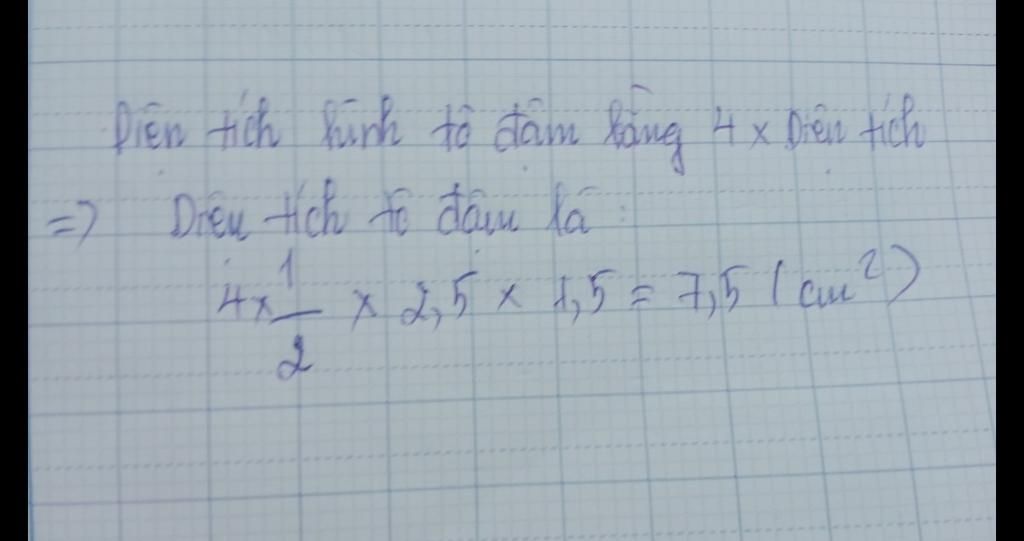 Diện tích hình tô đậm bằng 4 x Diện tích
=> Diện tích tô đậm là :
4 x 1/2 x 2,5 x 1,5 = 7,5 (cm²)